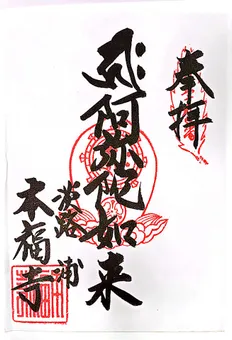 奉拝
阿弥陀如来
淡路浦
本福寺